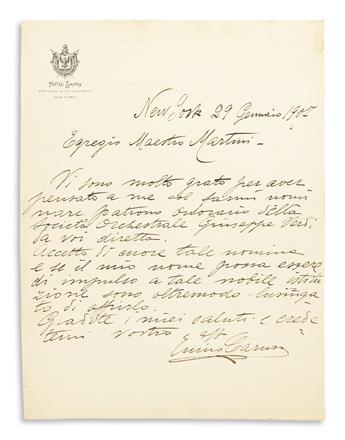 Hotel Savoy
New York 29 Gennaio 1907
Egregio Maestro Martini -
Vi sono molto grato per aver
pensato a me col farmi nomi
nare patrono onorario della
società Orchestrale Giuseppe Verdi
da voi diretta.
Accetto di cuore tale nomina
e se il mio nome possa essere
di impulso a tale nobile istitu
zione sono oltremodo lusinga
to di offrirlo.
Gradite i miei saluti e crede
temi vostro aff
Enrico Caruso